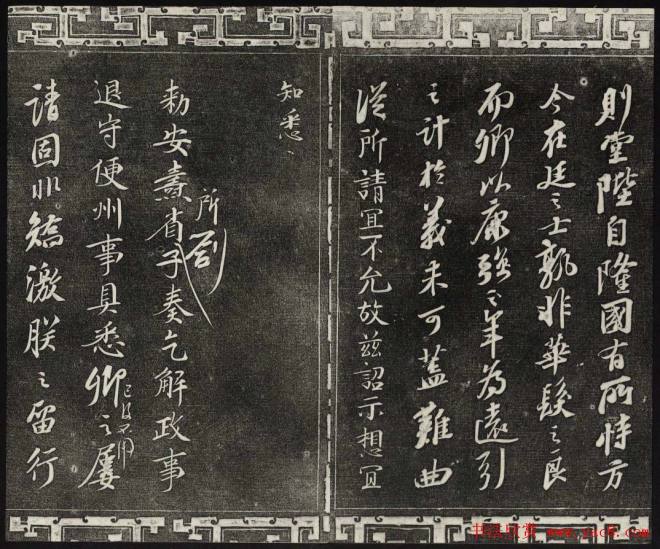 則堂陛自隆國有所恃方
今在廷之士孰非華髮之良
而卿以康強之年為遠引
之計於義未可蓋難曲
從所請宜不允故茲詔示想宜
知悉
敕安燾省所劄子奏乞解政事
退守便州事具悉卿之屢
請固非矯激朕之留行